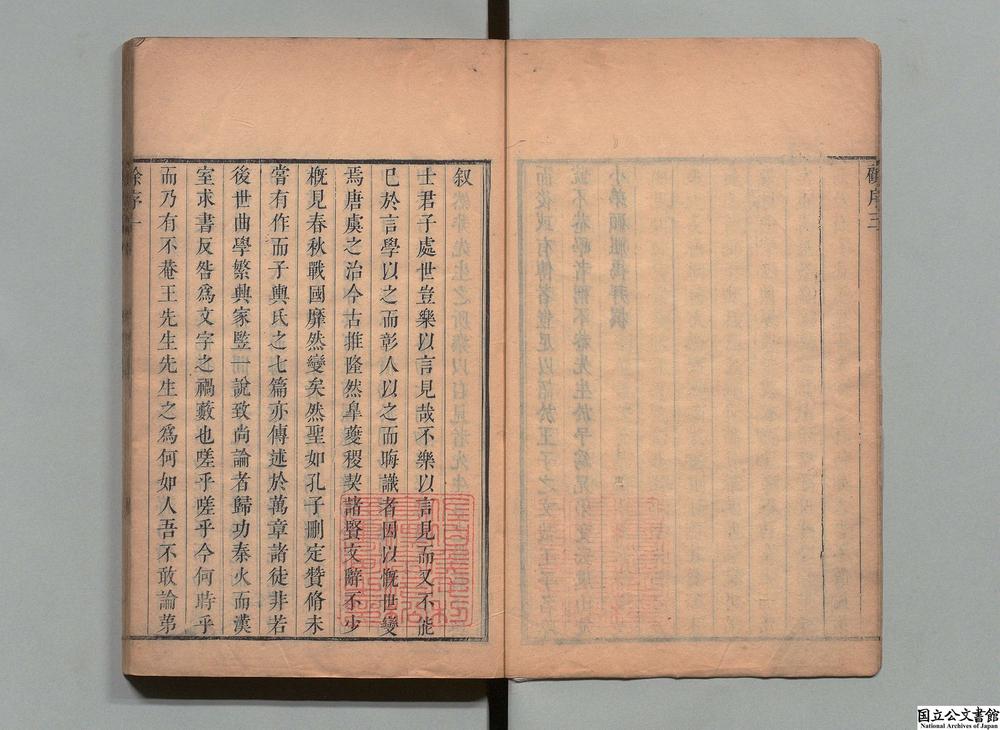 顧序三
叙
士君子處世豈樂以言見哉不樂以言見而又不能
已於言學以之而彰人以之而晦識者因以慨世變
焉唐虞之治今古推隆然皐夔稷契諸賢文辭不少
槪見春秋戰國靡然變矣然聖如孔子刪定贊脩未
嘗有作而子輿氏之七篇亦傳述於萬章諸徒非若
後世曲學繁興家監一說致尚論者歸功秦火而漢
室求書反咎爲文字之禍藪也嗟乎嗟乎今何時乎
而乃有不菴王先生先生之爲何如人吾不敢論第
徐序一
国立公文書館
National Archives of Japan